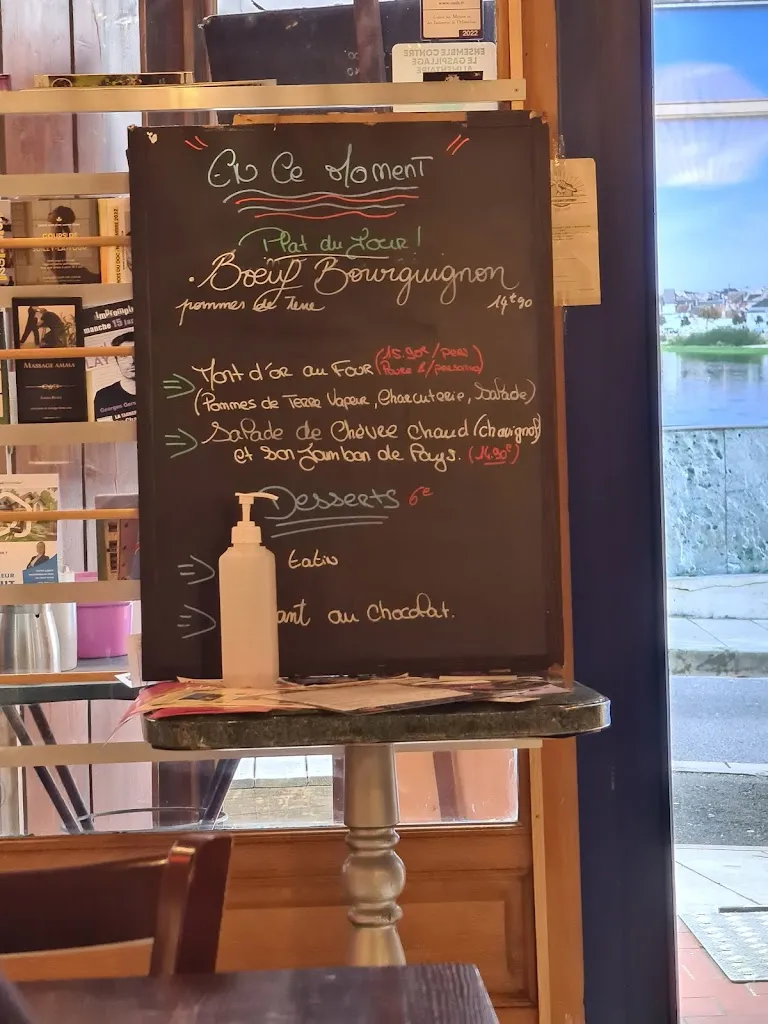 2022
ENSEMBLE CONTRE
LE GASPILLAGE
ALIMENTAIRE
En Ce Moment
Plat du Jour!
Bœuf Bourguignon
pommes de Terre 14€90
Mont d'or au Four (15.90€/pers
(Pommes de Terre Vapeur, Charcuterie, Salade)
Salade de Chèvre Chaud (chavignol)
et son Jambon de Pays. (14.90€)
Desserts 6€
tatin
ant au Chocolat.
MASSAGE AMMA
Impromptu
manche 15 jan